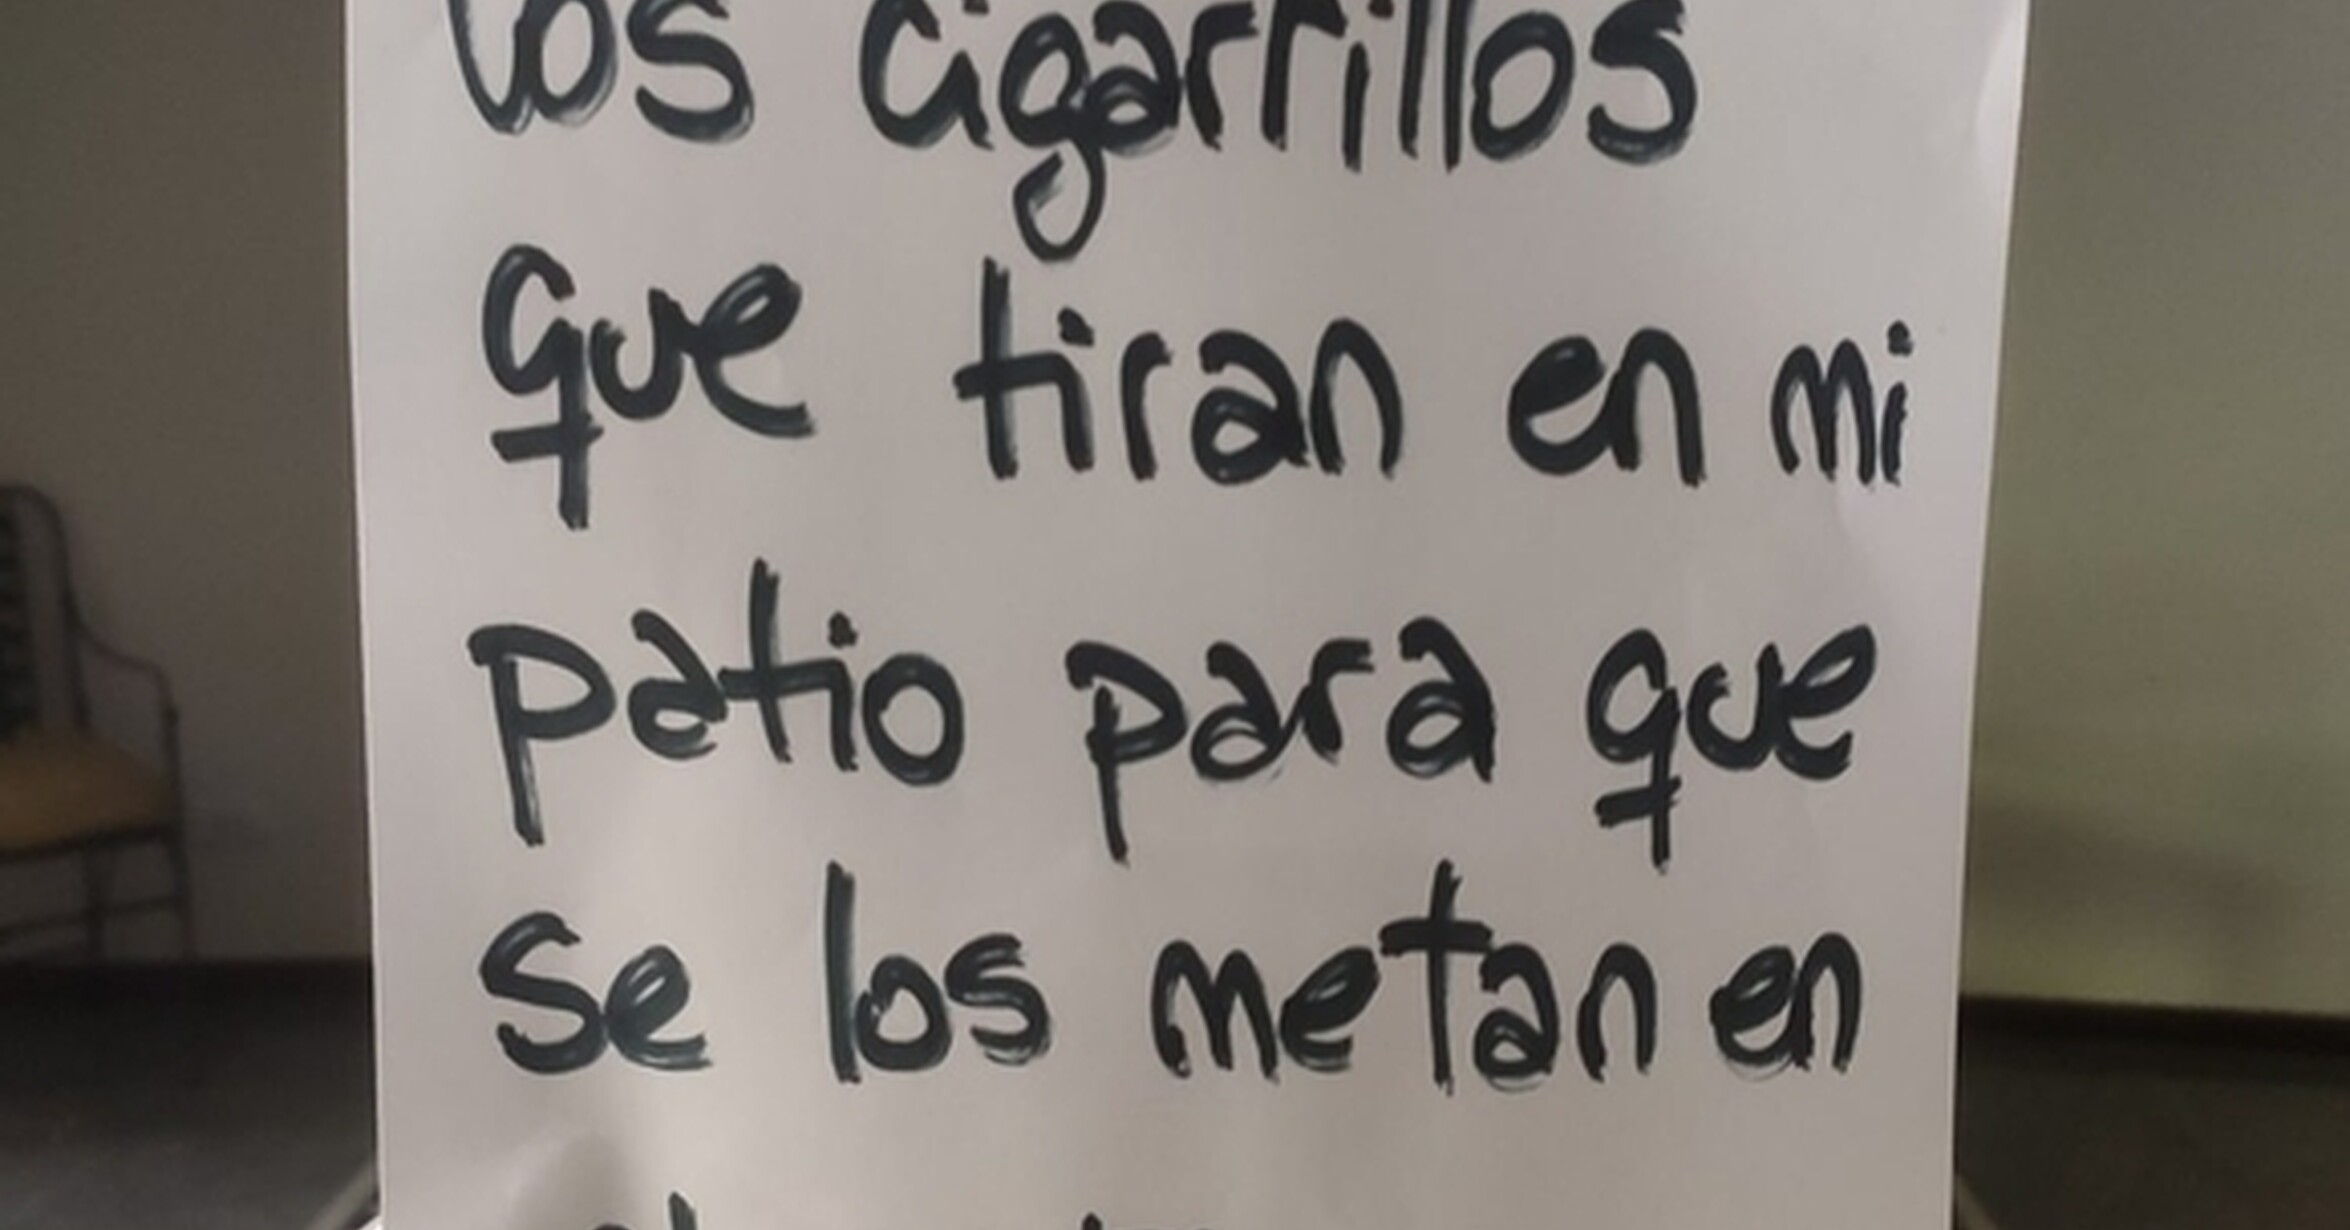 los cigarrillos
que tiran en mi
patio para que
se los metan en